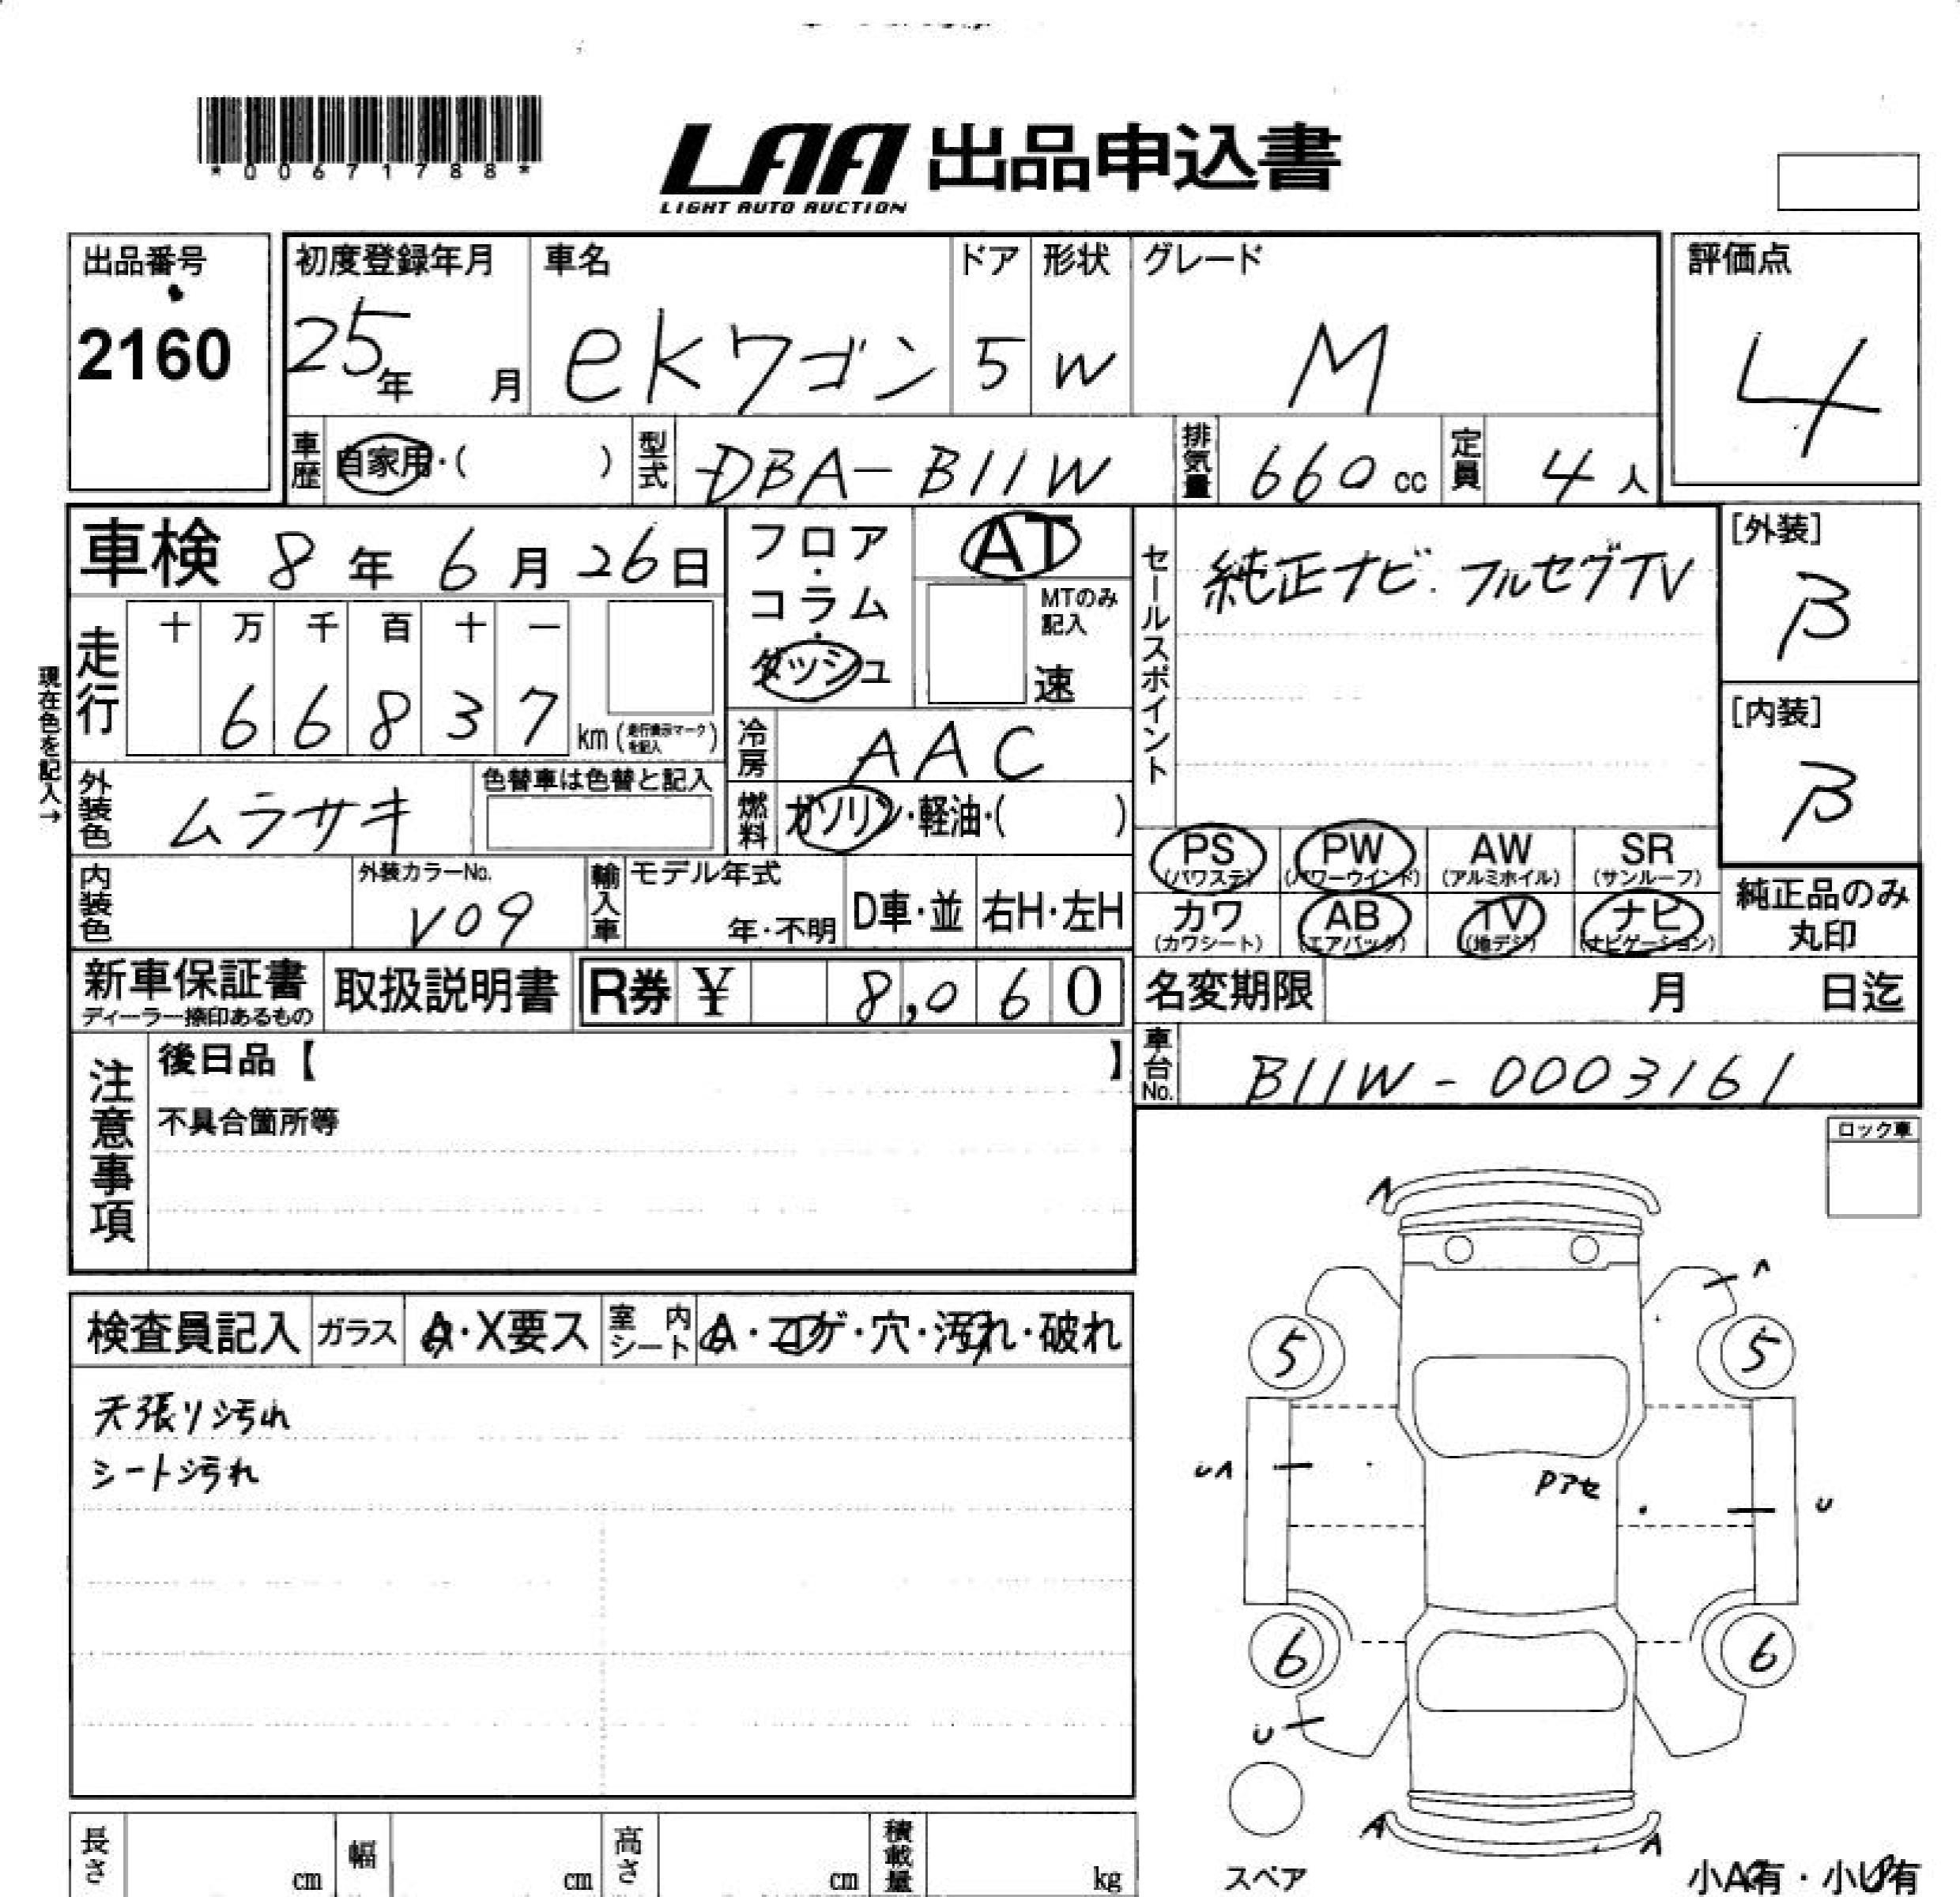 *00671788*
LAA 出品申込書
LIGHT AUTO AUCTION
出品番号
2160
初度登録年月
25年 月
車名
ekワゴン
ドア
5
形状
W
グレード
M
評価点
4
車歴 自家用・( )
型式 DBA-B11W
排気量 660cc
定員 4人
車検 8年6月26日
フロア・コラム・ダッシュ
AT
MTのみ記入
速
セールスポイント
純正ナビ.フルセグTV
[外装]
β
[内装]
β
現在色を記入→
走行
十 万 千 百 十 一
6 6 8 3 7 km (走行表示マークを記入)
冷房 AAC
燃料 ガソリン・軽油・( )
外装色 ムラサキ
色替車は色替と記入
内装色
外装カラーNo.
V09
輸入車
モデル年式
年・不明
D車・並
右H・左H
PS (パワステ)
PW (パワーウインド)
AW (アルミホイル)
SR (サンルーフ)
カワ (カワシート)
AB (エアバック)
TV (地デジ)
ナビ (ナビゲーション)
純正品のみ
丸印
新車保証書
ディーラー捺印あるもの
取扱説明書
R券 ¥ 8,060
名変期限 月 日迄
車台No. B11W-0003161
注意事項
後日品【 】
不具合箇所等
ロック車
検査員記入
ガラス A・X要ス
室内シート A・コゲ・穴・汚れ・破れ
天張リ汚れ
シート汚れ
A
A
5
5
UA
Pアセ
U
6
6
U
A
A
スペア
長さ cm
幅 cm
高さ cm
積載量 kg
小A有・小U有